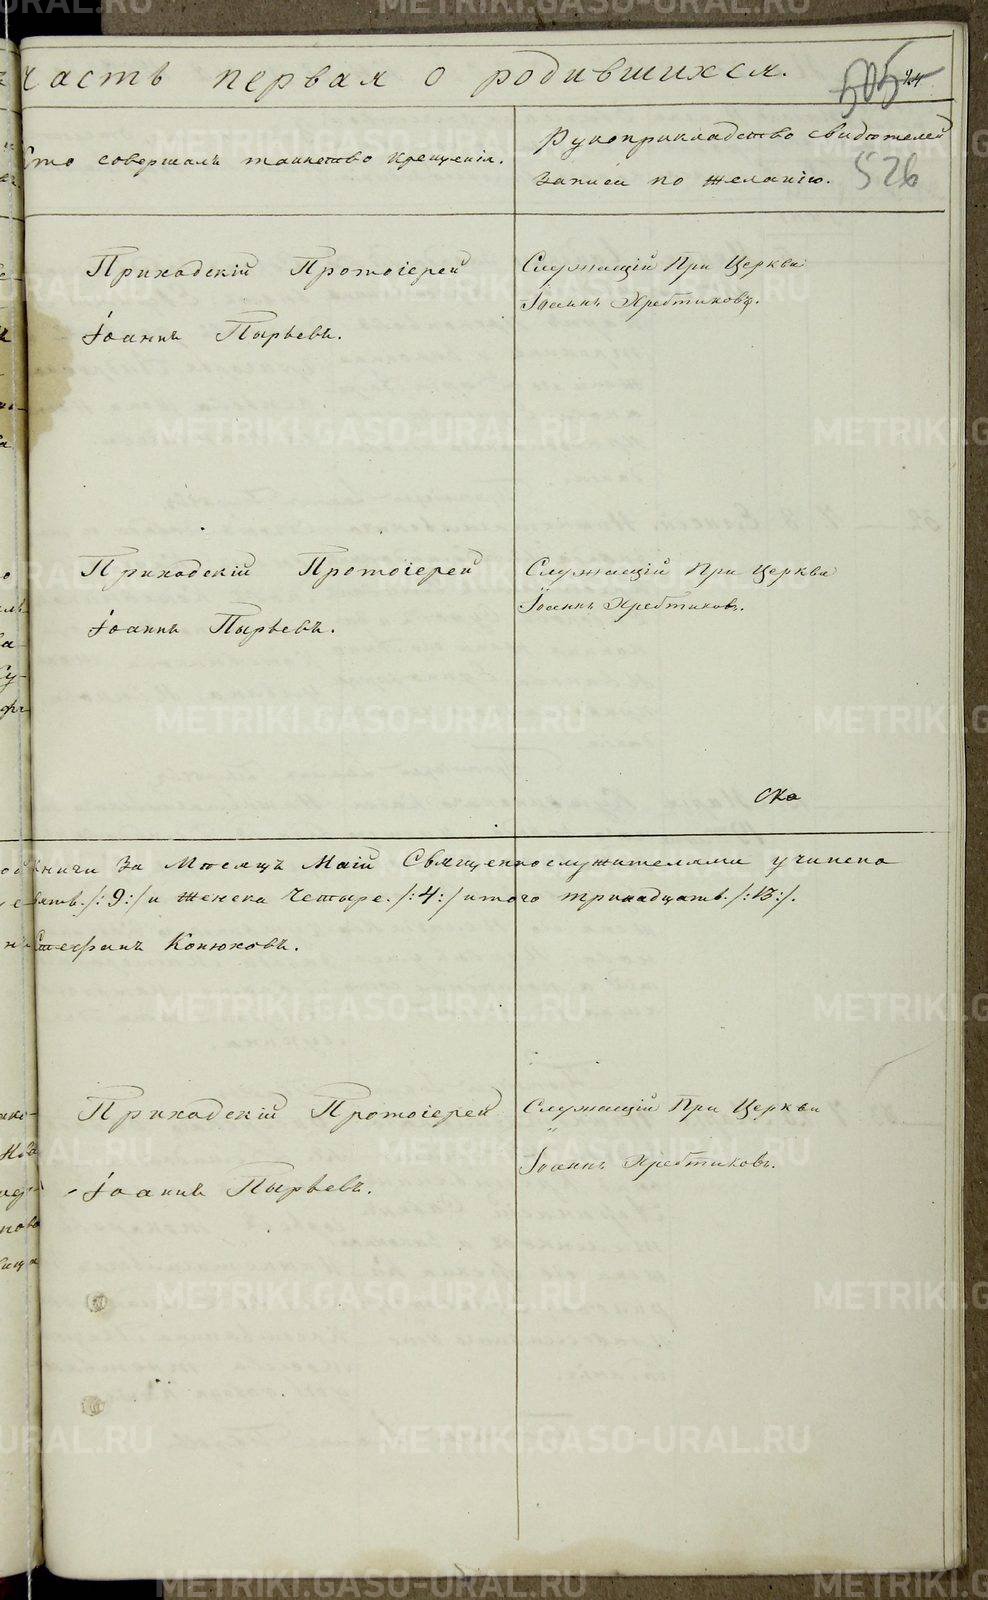 Часть первая о родившихся.
505
24
Кто совершалъ таинство крещенія.
Рукоприкладство свидѣтелей
записи по желанію.
526
Приходскій Протоіерей
Іоаннъ Пырьевъ.
Служащій При Церкви
Іоаннъ Хребтиковъ.
Приходскій Протоіерей
Іоаннъ Пырьевъ.
Служащій При Церкви
Іоаннъ Хребтиковъ.
ска
книги За Мѣсяцъ Маій Священнослужителями учинена
девять /:9:/ и женска Четыре /:4:/ итого тринадцать /:13:/.
Стефанъ Конюховъ.
Приходскій Протоіерей
Іоаннъ Пырьевъ.
Служащій При Церкви
Іоаннъ Хребтиковъ.
METRIKI.GASO-URAL.RU